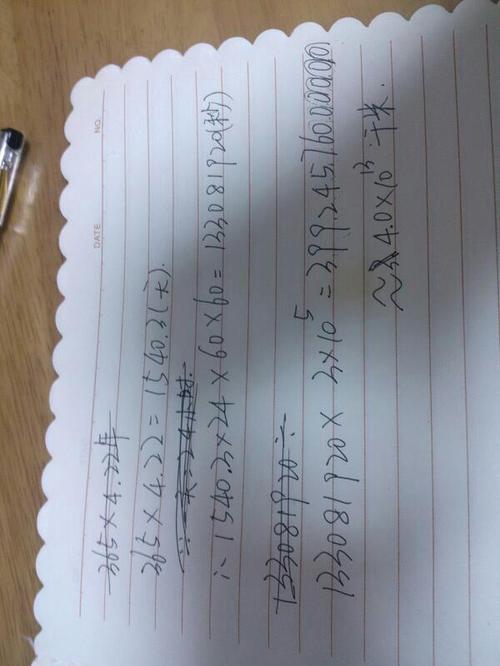 NO.
DATE
365×4.22年
365×4.22=1540.3(天).
(∵一天=24小时.
∴1540.3×24×60×60=133081920(秒)
133081920÷
133081920×3×10⁵=39924576000000
≈4.0×10¹³千米.